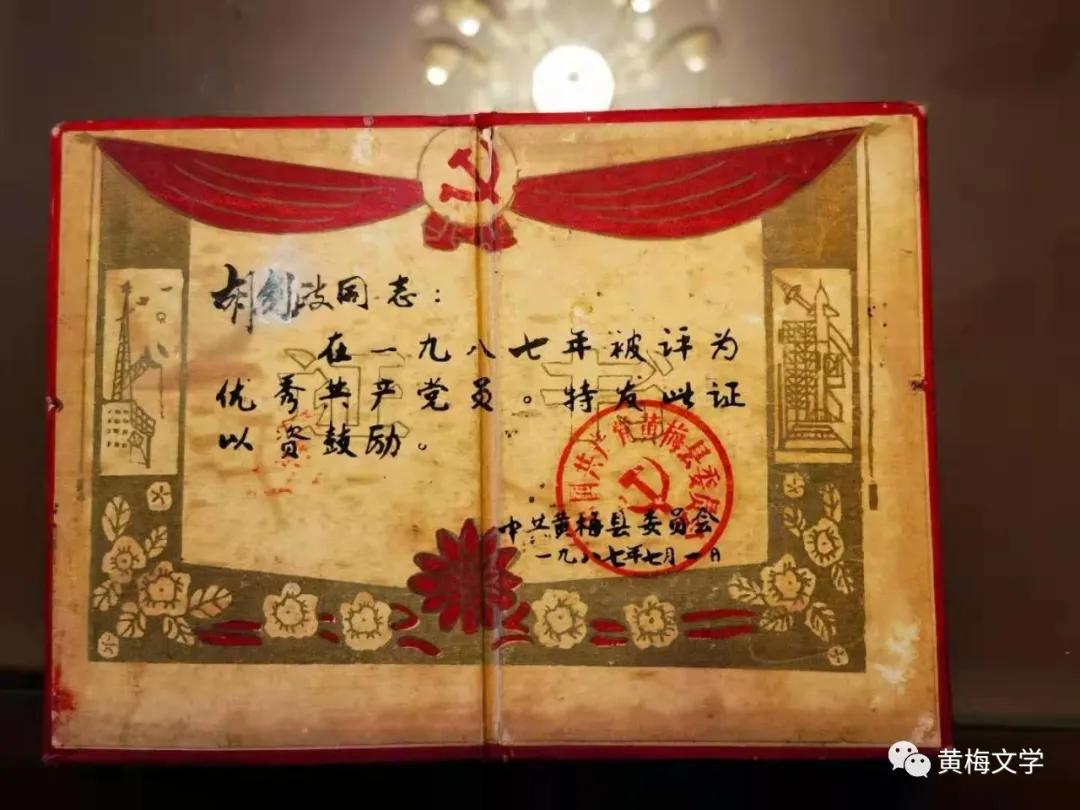 胡剑波同志：
在一九八七年被评为
优秀共产党员。特发此证
以资鼓励。
证书
中国共产党黄梅县委员会
中共黄梅县委员会
一九八七年七月一日
黄梅文学